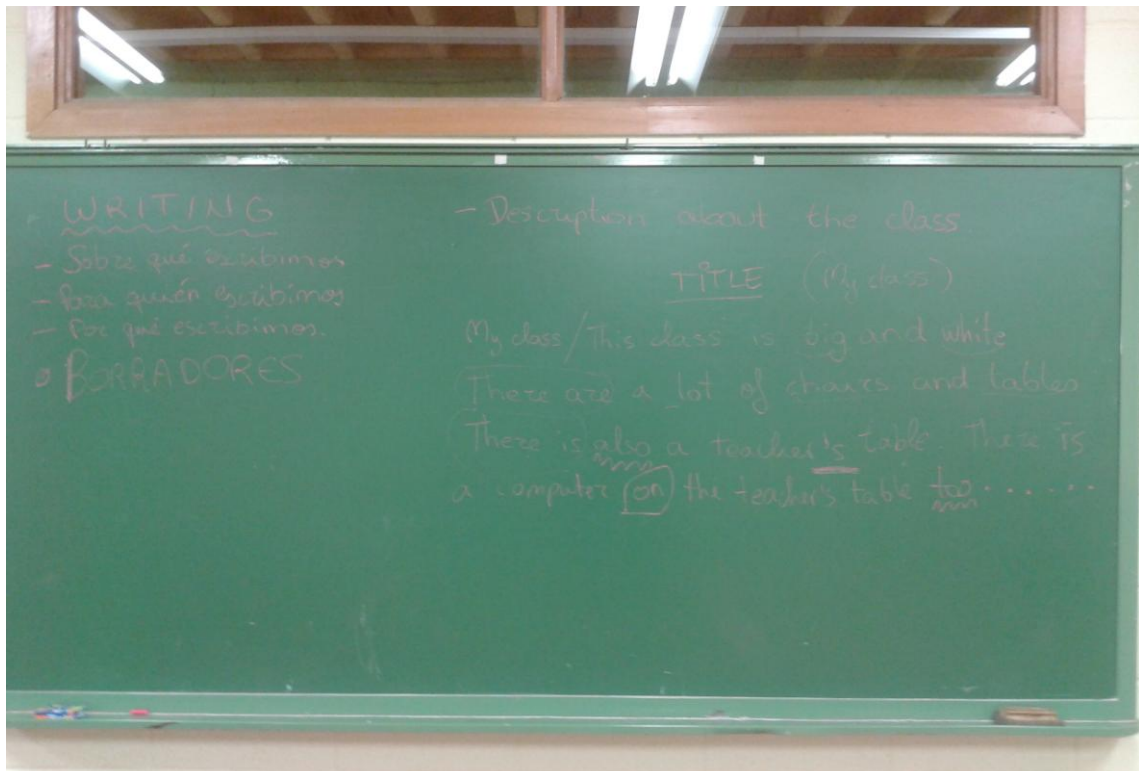 WRITING
- Sobre qué escribimos
- Para quién escribimos
- Por qué escribimos.
• BORRADORES
- Description about the class.
TITLE (My class)
My class/This class is big and white
There are a lot of chairs and tables
There is also a teacher's table. There is
a computer on the teacher's table too.......